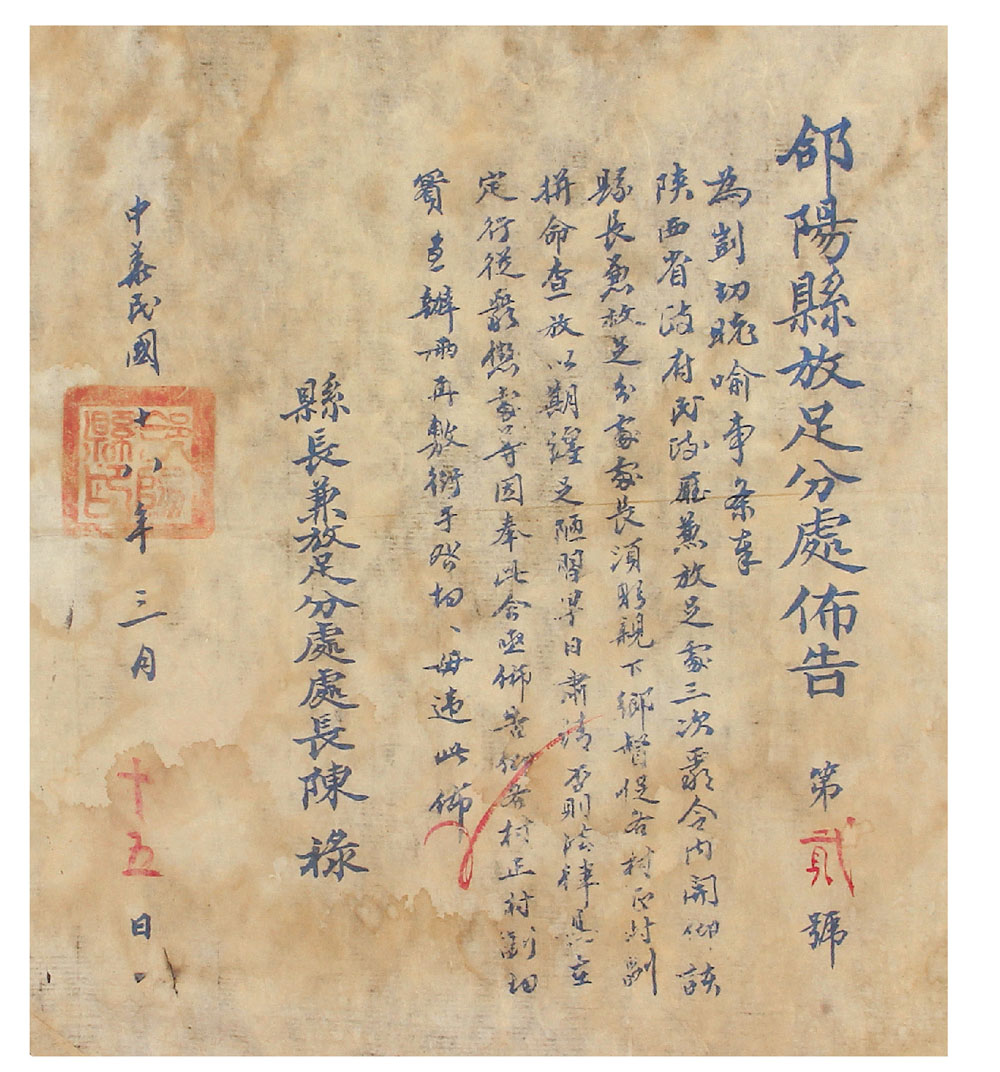 郃陽縣放足分處佈告 第貳號
為剴切曉喻事案奉
陝西省政府民政廳兼放足處三次嚴令内開仰該
縣長兼放足分處處長須躬親下鄉督促各村正村副
拼命查放以期纏足陋習早日肅清否則法律具在
定行從嚴懲處等因奉此合亟佈告仰各村正村副切
實查辦毋再敷衍于咎切、毋違此佈
縣長兼放足分處處長陳祿
中華民國十八年三月十五日
郃陽縣印